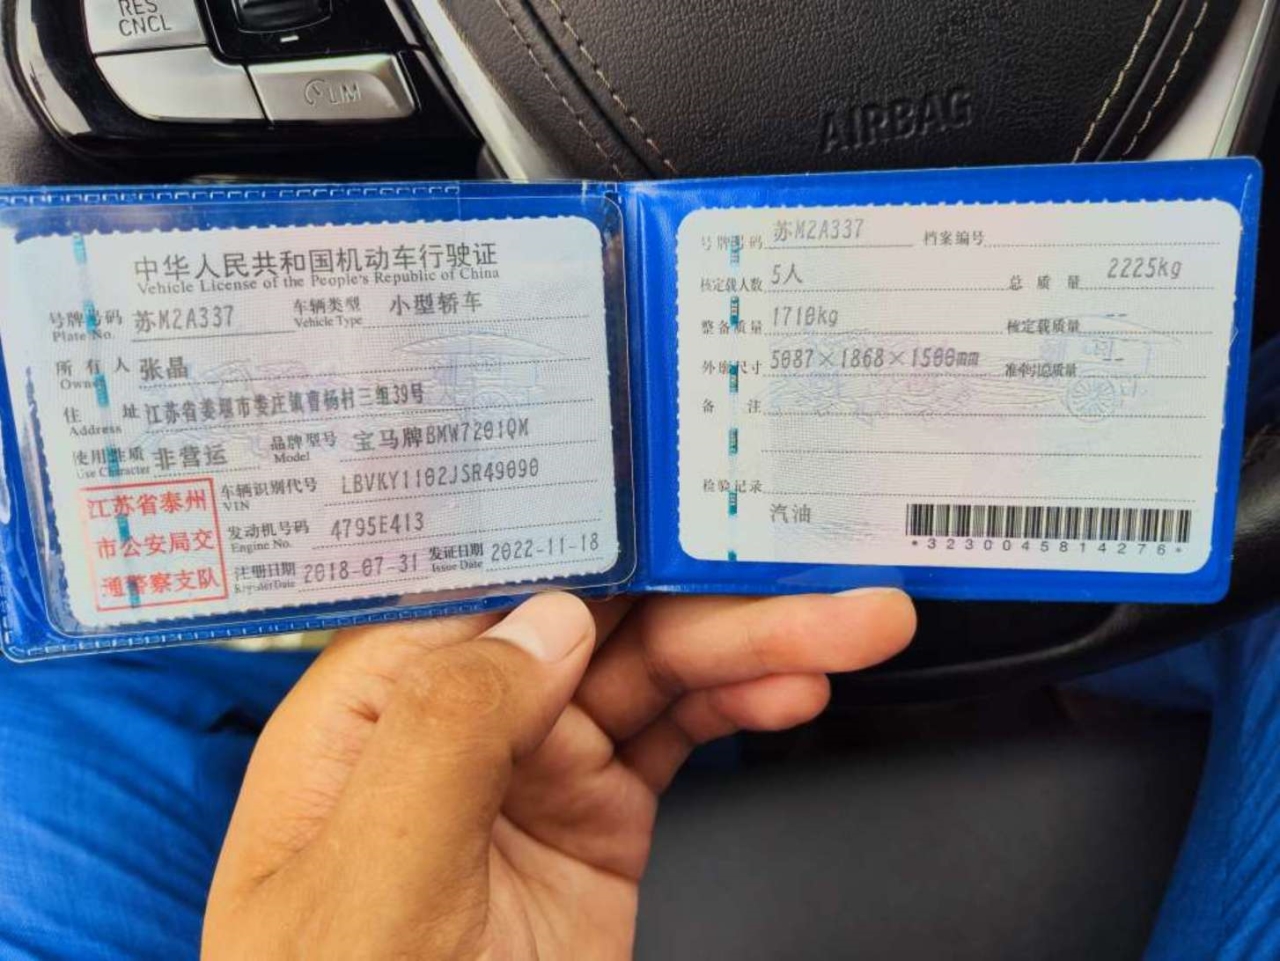 RES
CNCL
LIM
AIRBAG
中华人民共和国机动车行驶证
Vehicle License of the People's Republic of China
号牌号码 苏M2A337 车辆类型 小型轿车
Plate No. Vehicle Type
所有人 张晶
Owner
住址 江苏省姜堰市娄庄镇曹杨村三组39号
Address
使用性质 非营运 品牌型号 宝马牌BMW7201QM
Use Character Model
江苏省泰州
市公安局交
通警察支队
车辆识别代号 LBVKY1102JSR49090
VIN
发动机号码 4795E413
Engine No.
注册日期 2018-07-31 发证日期 2022-11-18
Register Date Issue Date
号牌号码 苏M2A337 档案编号
核定载人数 5人 总质量 2225kg
整备质量 1710kg 核定载质量 --
外廓尺寸 5087×1868×1500mm 准牵引总质量 --
备注
检验记录
汽油
*3230045814276*